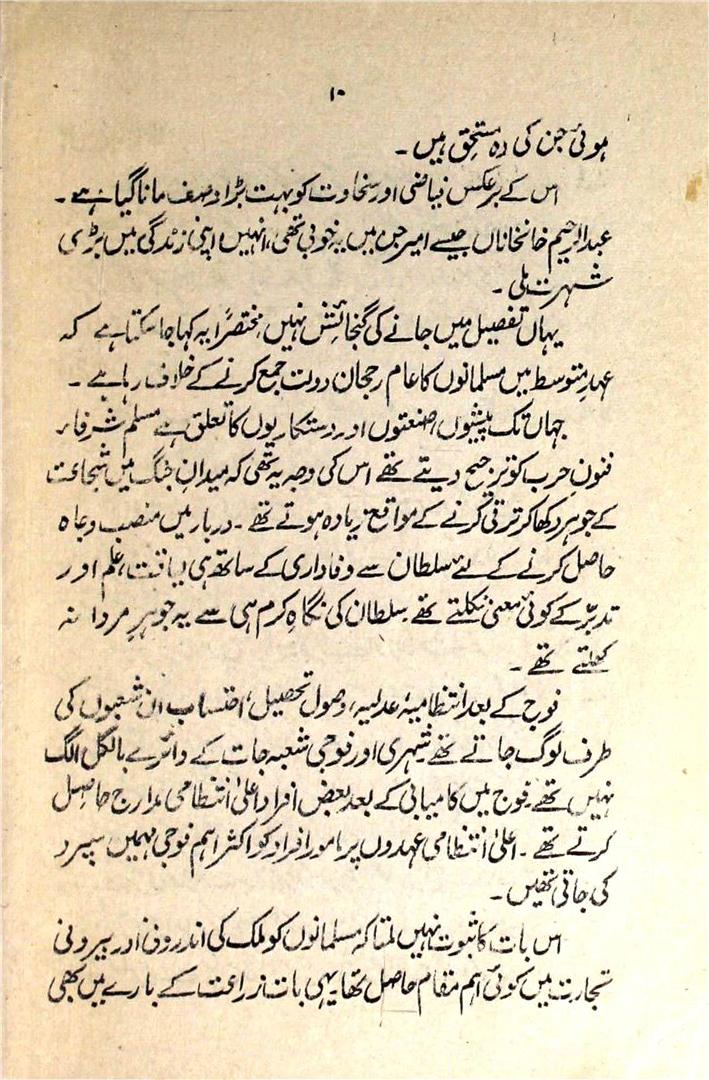 ۱۰
ہوئی جن کی وہ مستحق ہیں۔
اس کے برعکس فیاضی اور سخاوت کو بہت بڑا وصف مانا گیا ہے۔
عبدالرحیم خانخاناں جیسے امیر جن میں یہ خوبی تھی، انہیں اپنی زندگی میں بڑی
شہرت ملی۔
یہاں تفصیل میں جانے کی گنجائش نہیں، مختصراً یہ کہا جا سکتا ہے کہ
عہدِ متوسط میں مسلمانوں کا عام رجحان دولت جمع کرنے کے خلاف رہا ہے۔
جہاں تک پیشوں، صنعتوں اور دستکاریوں کا تعلق ہے مسلم شرفاء
فنون حرب کو ترجیح دیتے تھے اس کی وجہ یہ تھی کہ میدانِ جنگ میں شجاعت
کے جوہر دکھا کر ترقی کرنے کے مواقع زیادہ ہوتے تھے۔ دربار میں منصب و جاہ
حاصل کرنے کے لئے سلطان سے وفاداری کے ساتھ ہی لیاقت، علم اور
تدبّر کے کوئی معنی نکلتے تھے سلطان کی نگاہِ کرم ہی سے یہ جوہرِ مردانہ
کھلتے تھے۔
فوج کے بعد انتظامیہ، عدلیہ، وصول تحصیل، احتساب ان شعبوں کی
طرف لوگ جاتے تھے شہری اور فوجی شعبہ جات کے دائرے بالکل الگ
نہیں تھے۔ فوج میں کامیابی کے بعد بعض افراد اعلیٰ انتظامی مدارج حاصل
کرتے تھے۔ اعلیٰ انتظامی عہدوں پر مامور افراد کو اکثر اہم فوجی مہمیں سپرد
کی جاتی تھیں۔
اس بات کا ثبوت نہیں ملتا کہ مسلمانوں کو ملک کی اندرونی اور بیرونی
تجارت میں کوئی اہم مقام حاصل تھا۔ یہی بات زراعت کے بارے میں بھی